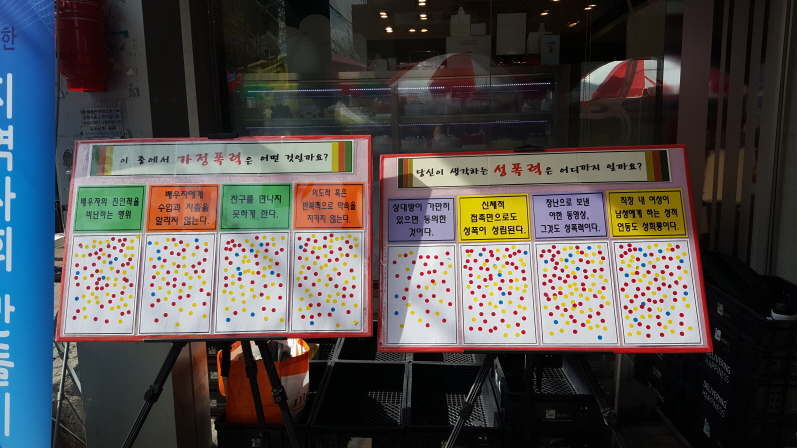 한
지역사회 만들기
이 중에서 가정폭력은 어떤 것일까요?
배우자의 친인척을
비난하는 행위
배우자에게
수입과 지출을
알리지 않는다.
친구를 만나지
못하게 한다.
의도적 혹은
반복적으로 약속을
지키지 않는다.
당신이 생각하는 성폭력은 어디까지 일까요?
상대방이 가만히
있으면 동의한
것이다.
신체적
접촉만으로도
성폭이 성립된다.
장난으로 보낸
야한 동영상,
그것도 성폭력이다.
직장 내 여성이
남성에게 하는 성적
언동도 성희롱이다.
DELIVERING
HAPPINESS
DELIVERING
HAPPINESS